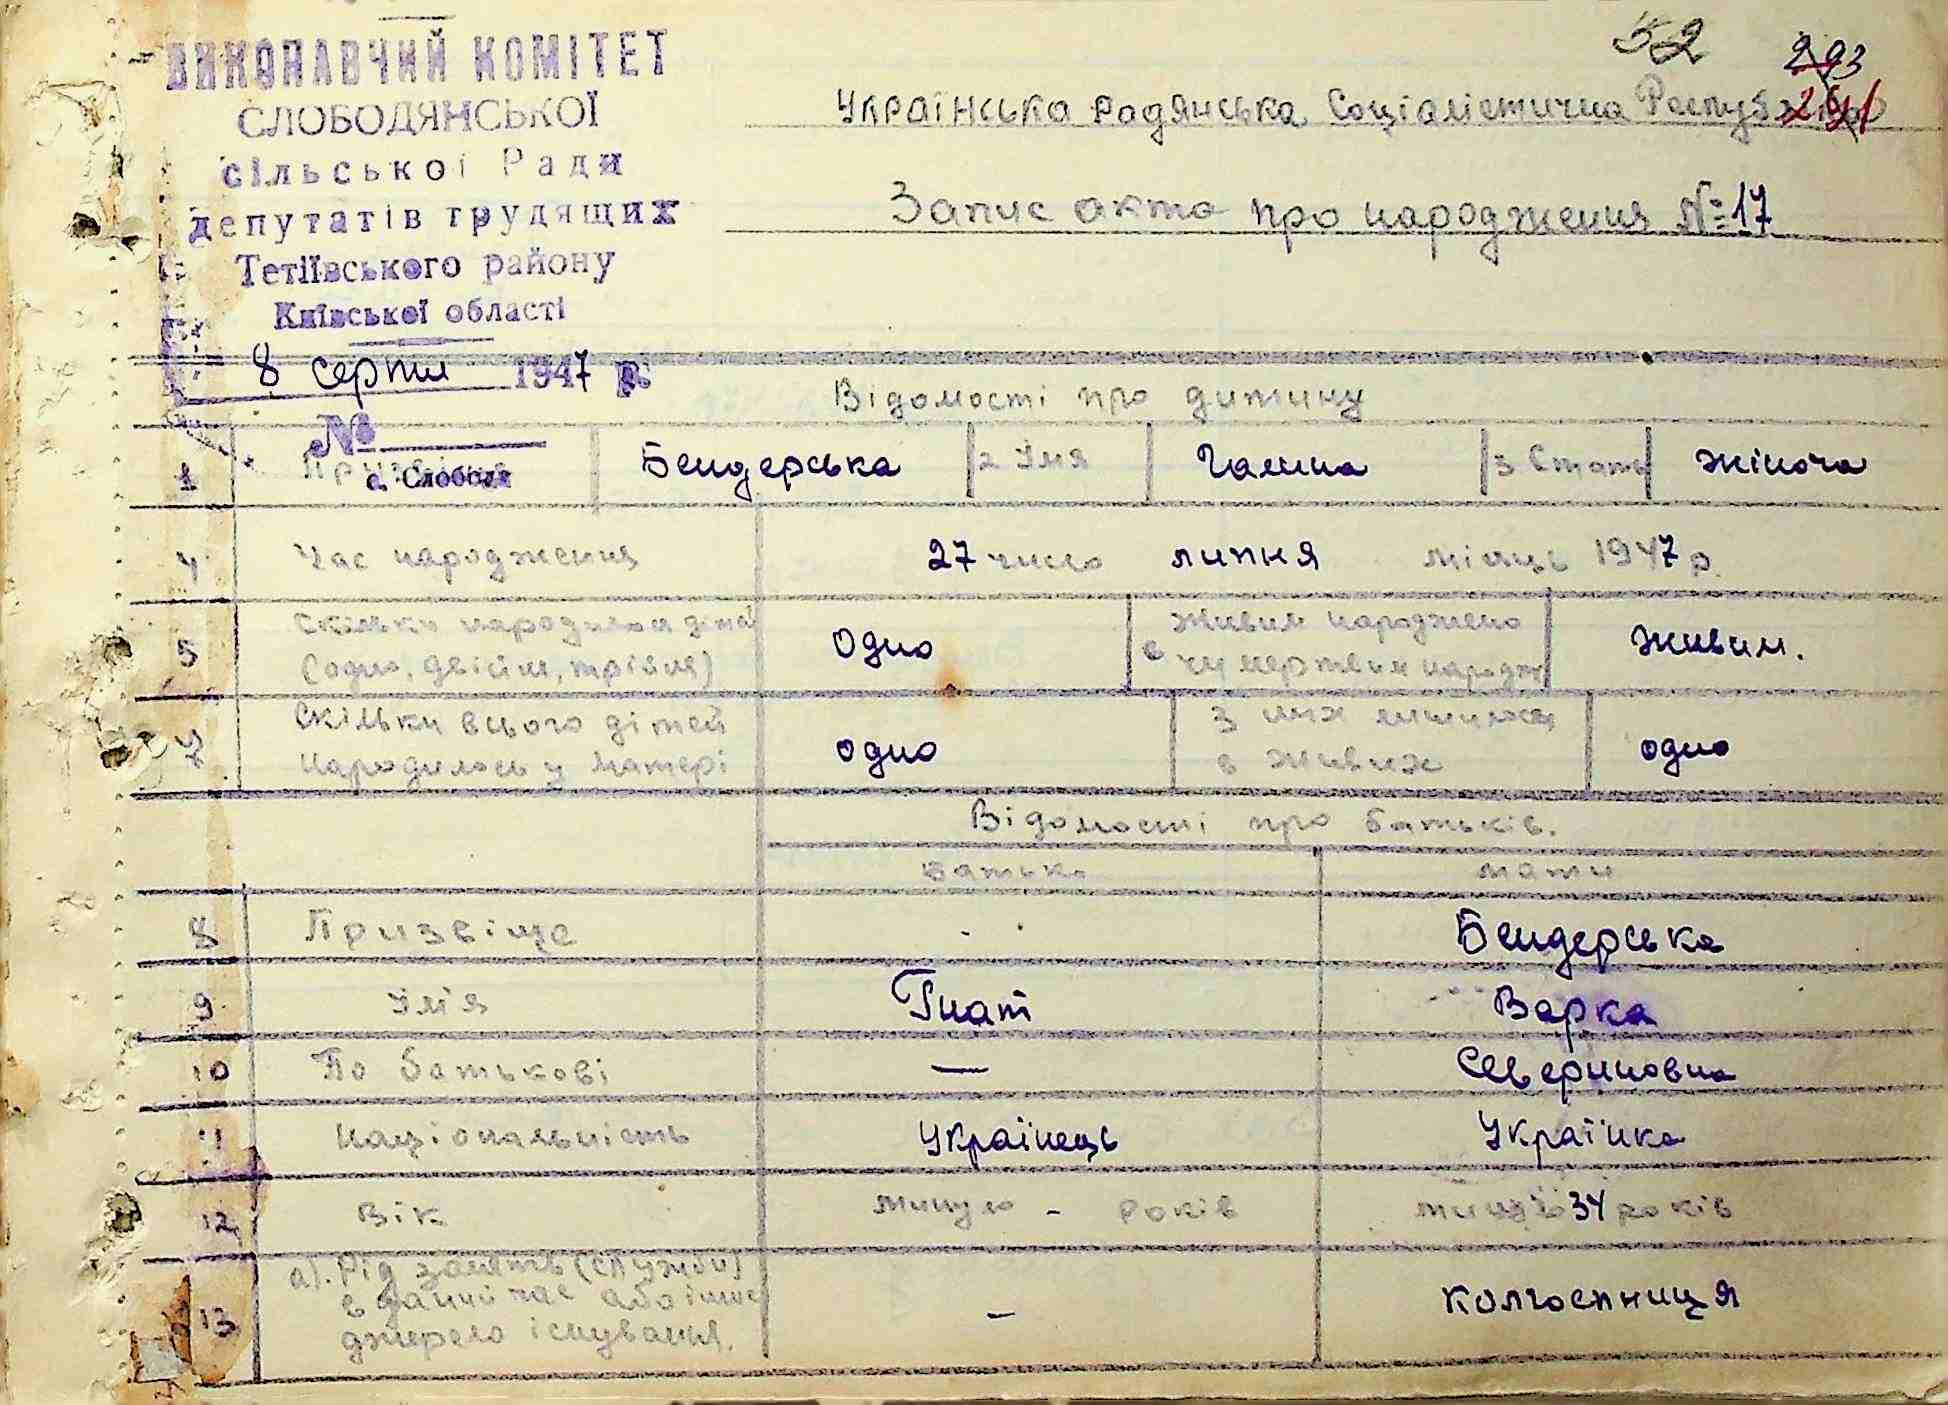 52
293
291
ВИКОНАВЧИЙ КОМІТЕТ
СЛОБОДЯНСЬКОЇ
сільської Ради
депутатів трудящих
Тетіївського району
Київської області
8 серпня 1947 р.
№
с. Слобода
Українська Радянська Соціалістична Республіка
Запис акта про народження № 17
Відомості про дитину
1 Призвіще Бендерська 2 Ім'я Галина 3 Стать жіноча
4 Час народження 27 число липня місяць 1947 р.
5 Скільки народилося дітей (одно, двійня, трійня) одно 6 Живим народжено чи мертвим народж. живим.
7 Скільки всього дітей народилось у матері одно З них лишилося в живих одно
Відомості про батьків.
Батько Мати
8 Призвіще - Бендерська
9 Ім'я Гнат Варка
10 По батькові — Севериновна
11 Національність Українець Українка
12 Вік минуло - років минуло 34 років
13 а). Рід занять (служби) в даний час або інше джерело існування. - колгоспниця